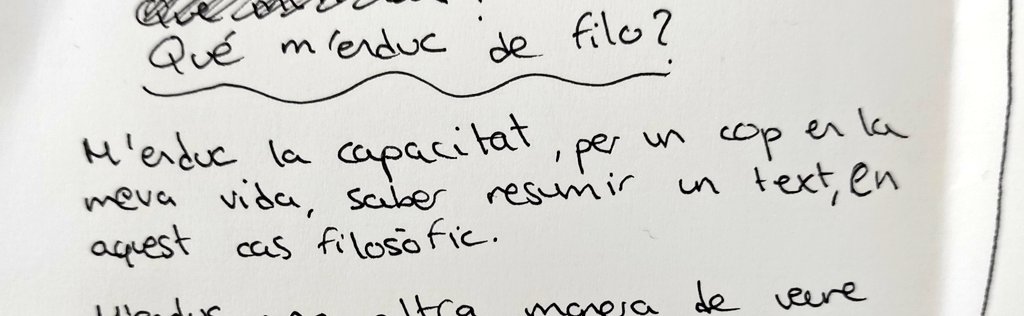 Qué m'enduc de filo?
M'enduc la capacitat, per un cop en la
meva vida, saber resumir un text, en
aquest cas filosòfic.
M'enduc una altra manera de veure